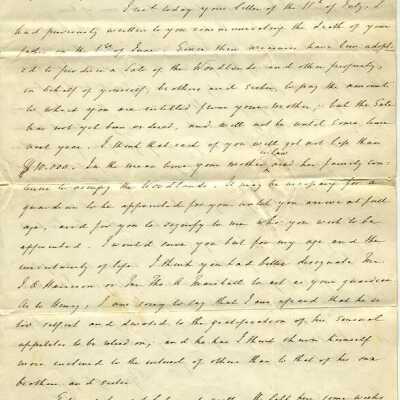 I rec'd today your letter of the 11th of July. I
had previously written to you communicating the death of your
father on the 5th of June. Since then measures have been adopt-
ed to produce a Sale of the Woodlands and other property,
in behalf of yourself, brothers and sister, to pay the amount
to which you are entitled from your Mother; but the Sale
has not yet been ordered, and will not be until some time
next year. I think that each of you will get not less than
$10.000. In the mean time your mother in law and her family con-
tinue to occupy the Woodlands. It may be necessary for a
guardian to be appointed for you until you arrive at full
age, and for you to signify to me who you wish to be
appointed. I would serve you but for my age and the
uncertainty of life. I think you had better designate Mr.
J. O. Harrison or Mr. Tho. A. Marshall to act as your guardian
As to Henry, I am sorry to say that I am afraid that he is
too selfish and devoted to the gratification of his sensual
appetites to be relied on; and he has I think shown himself
more inclined to the interest of others than to that of his own
brothers and sister.
some weeks